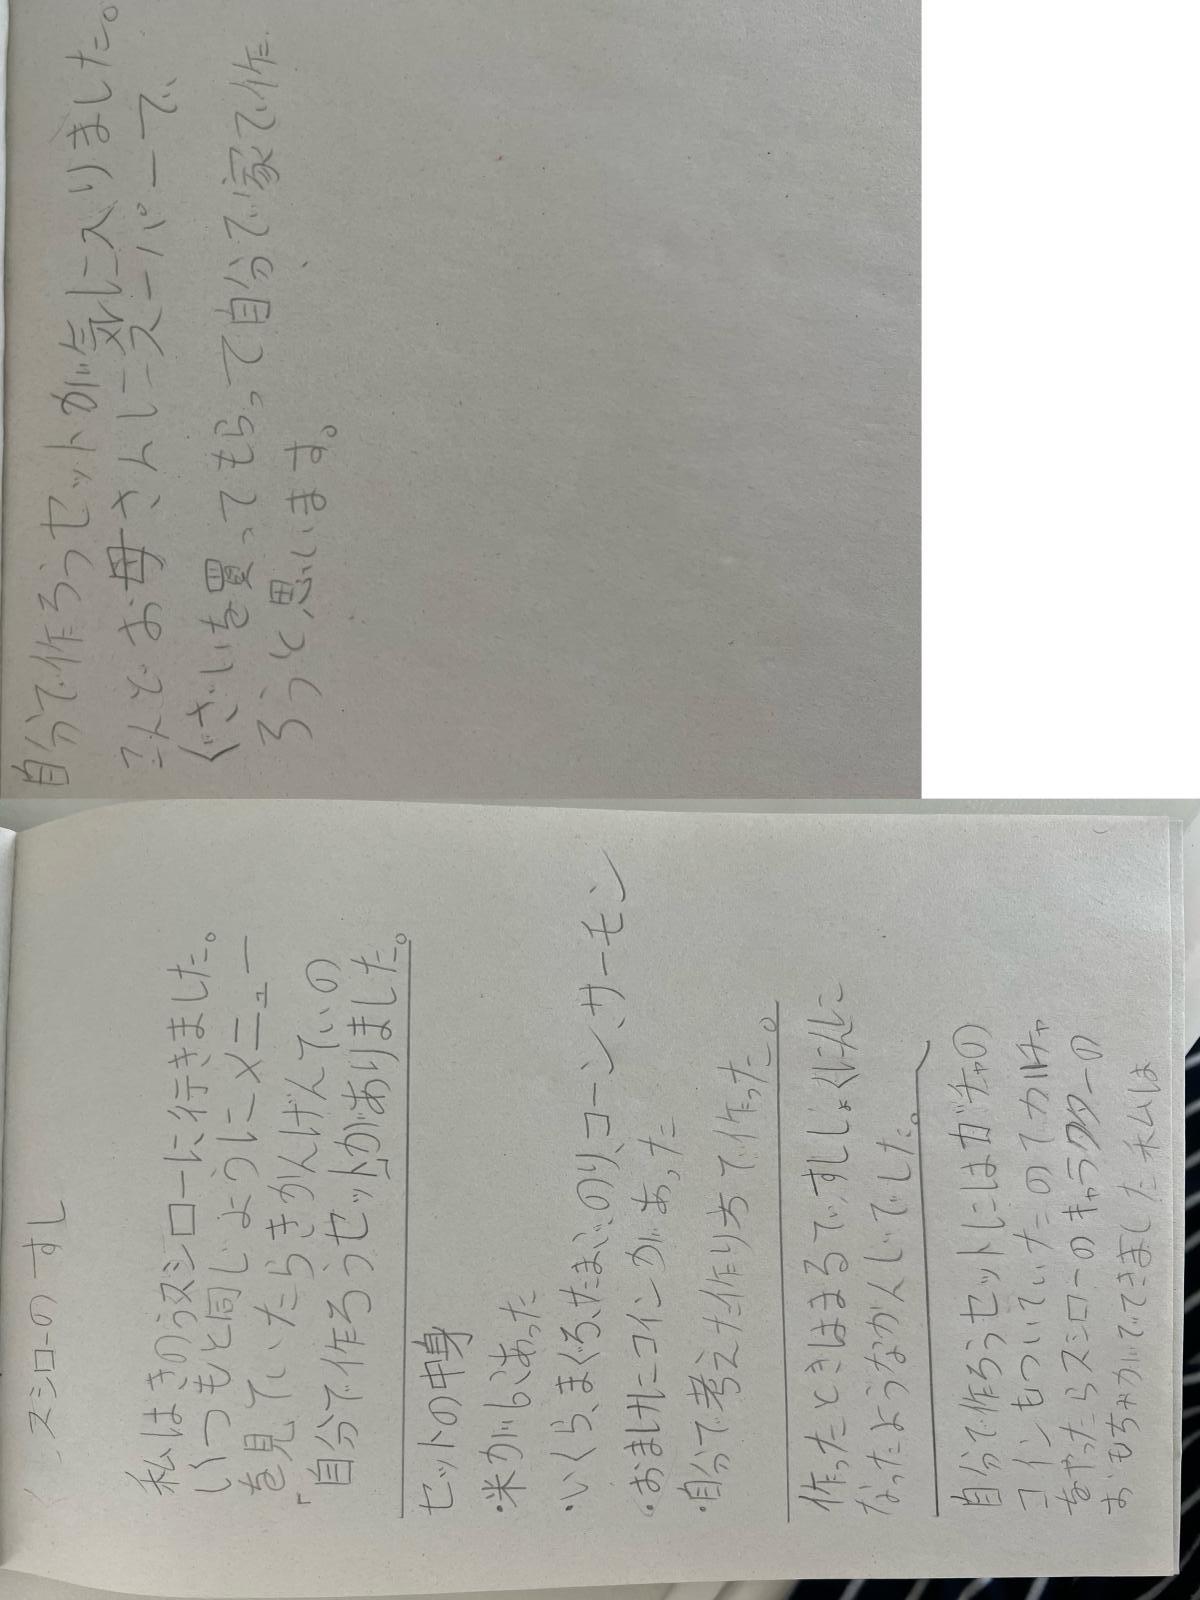 スシローのすし
私はきのうスシローに行きました。
いつもと同じようにメニュー
を見ていたらきかんげんていの
「自分で作ろうセット」がありました。
セットの中身
・米が6こあった
・いくら、まぐろ、たまご、のり、コーン、サーモン
・おまけにコインがあった
・自分で考えた作り方で作った。
作ったときはまるですししょくにんに
なったようなかんじでした。
自分で作ろうセットにはガチャの
コインもついていたのでガチャ
をやったらスシローのキャラクターの
おもちゃがでてきました私は
自分で作ろうセットが気に入りました。
こんどお母さんにスーパーで、
ぐざいを買ってもらって自分で家で作
ろうと思います。